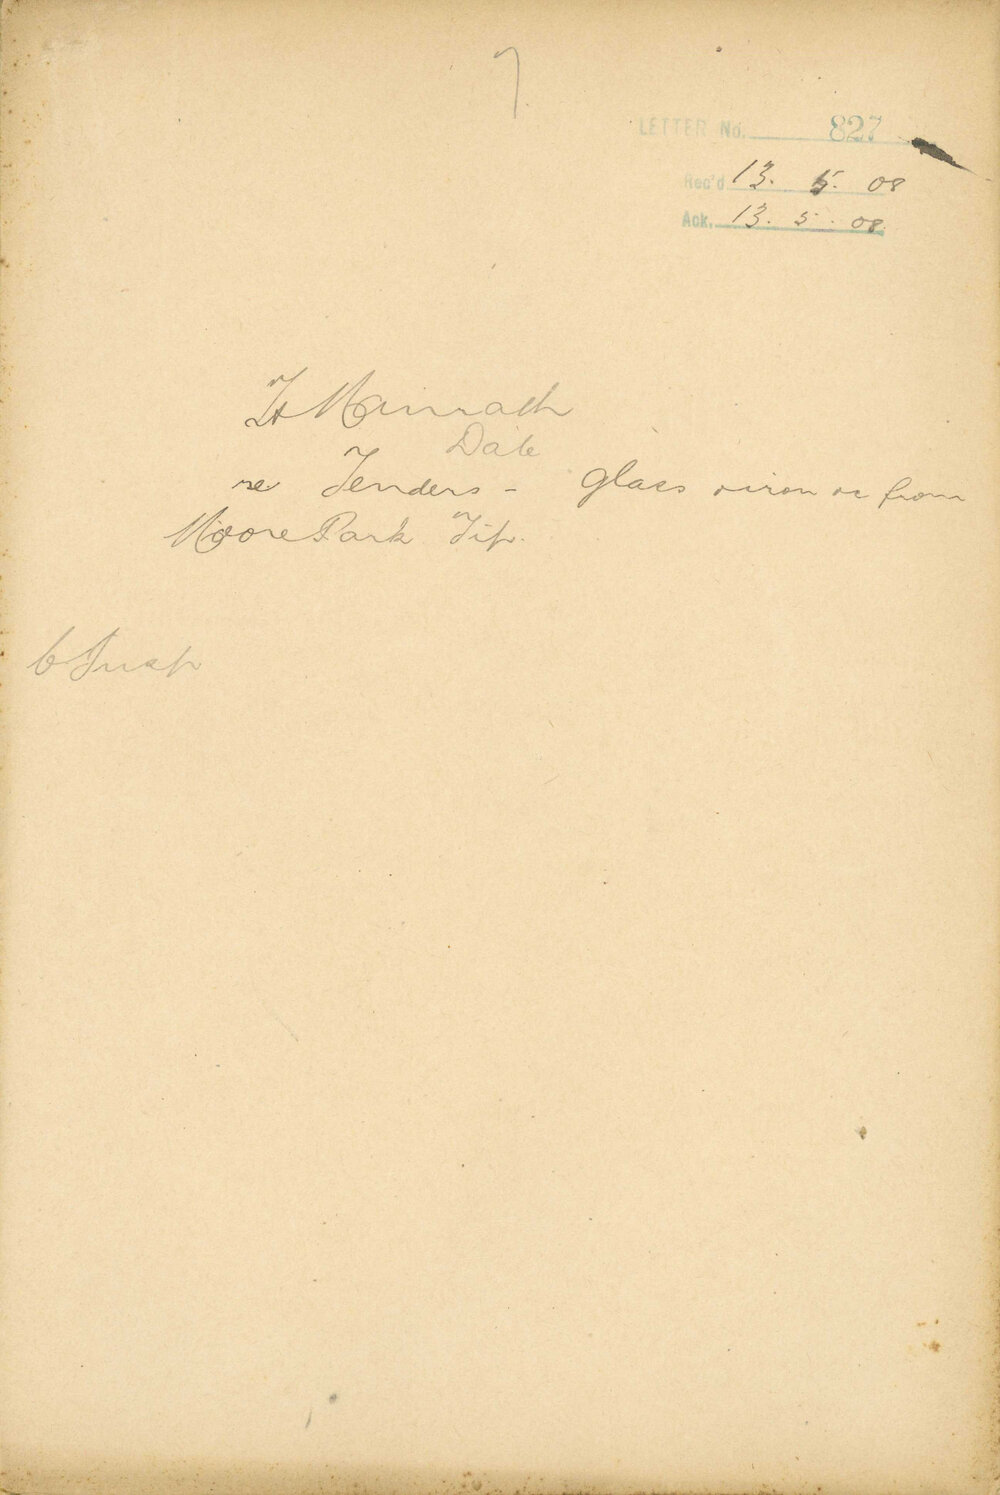 7
LETTER No. 827
Rec'd 13. 5. 08
Ack. 13. 5. 08.
H
Date
re Tenders - glass & iron &c from
Moore Park Tip.
C Insp